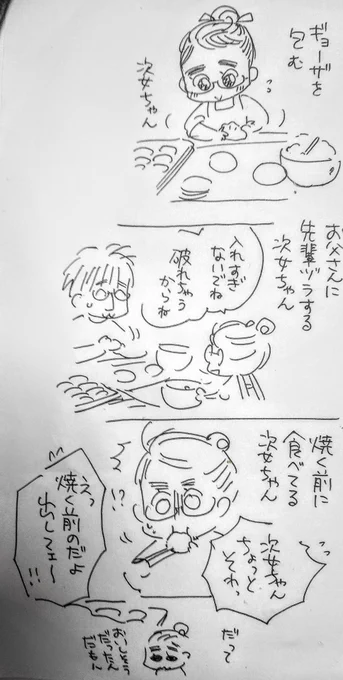 ギョーザを
包む
次女ちゃん
お父さんに
先輩ヅラする
次女ちゃん
入れすぎ
ないでね
破れちゃう
からね
焼く前に
食べてる
次女ちゃん
次女ちゃん
ちょっと
それっ
!?
えっ
焼く前のだよ
出してェ〜
!!
だって
おいしそう
だったん
だもん